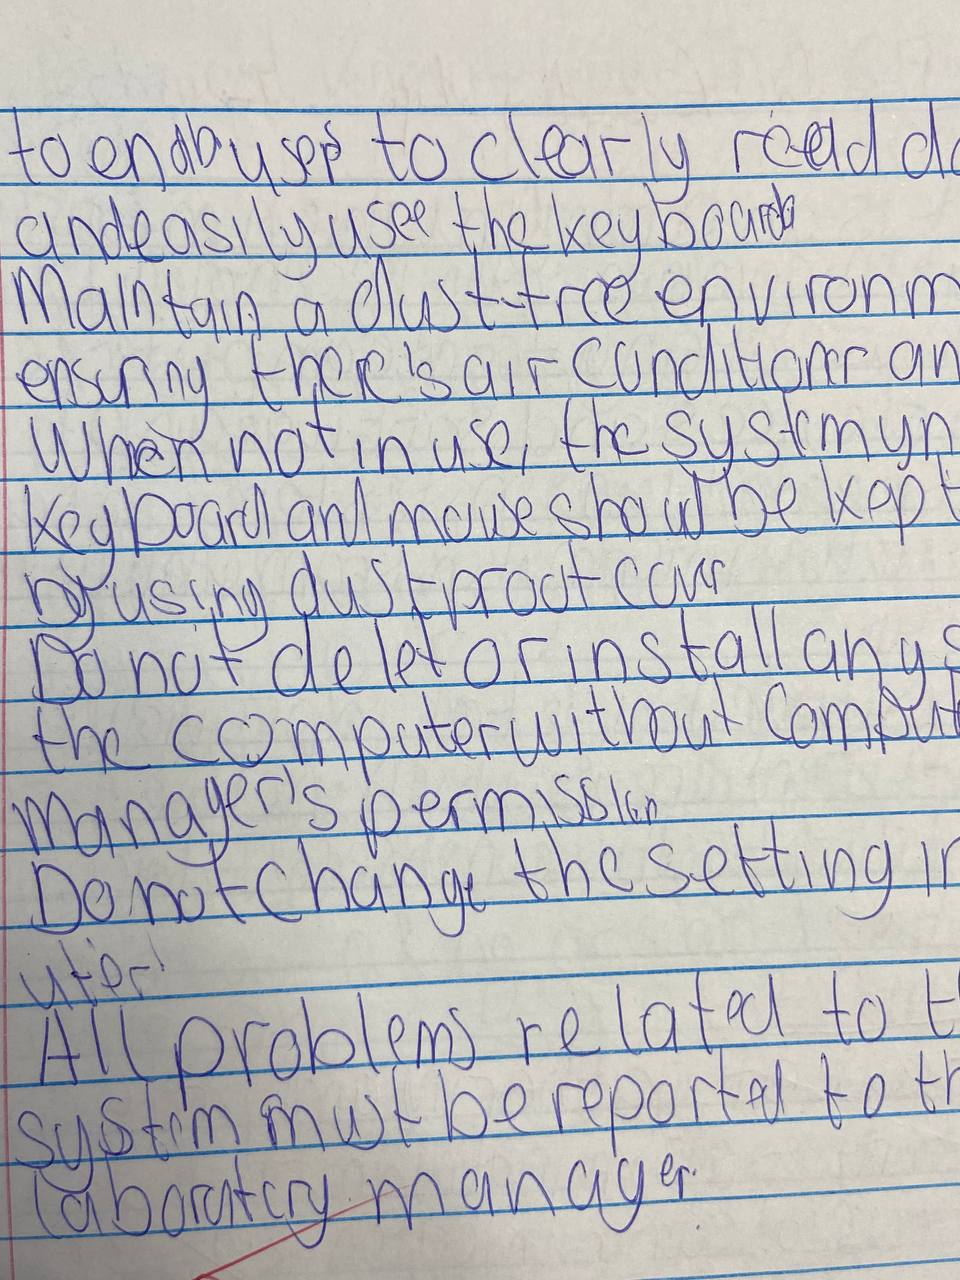 to end user to clearly read do
and easily usee the keyboard
Maintain a dust-free environm
ensuring there's air conditioner an
When not in use, the system un
keyboard and mouse should be kept
by using dust proof cover
Do not delet or install any s
the computer without comput
manager's permission
Do not change the setting in
uter
All problems related to t
system must be reported to th
laboratory manager.